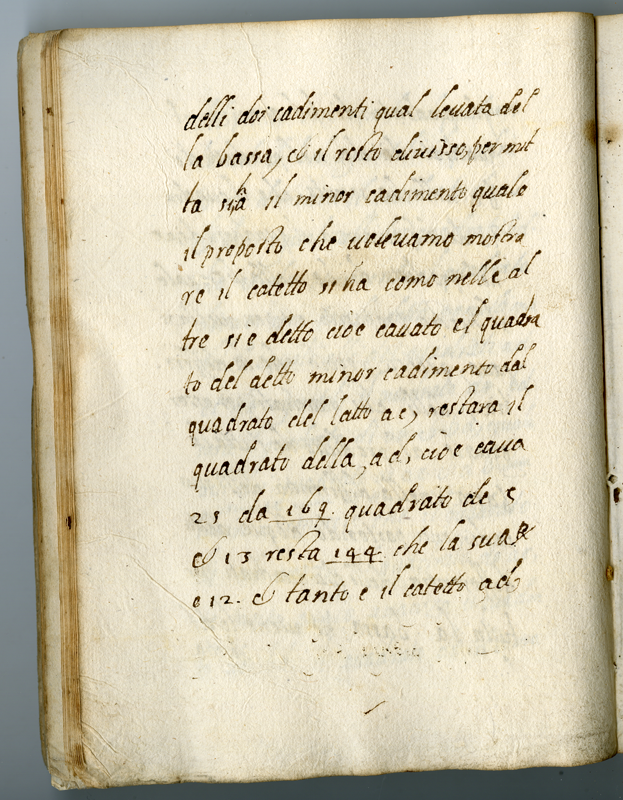 delli doi cadimenti qual levata del
la bassa, & il resto divisso, per mit
ta si ha il minor cadimento quale
il proposto che volevamo mostra
re il catetto si ha como nelle al
tre si e detto cioe cavato el quadra
to del detto minor cadimento dal
quadrato del latto ac, restara il
quadrato della ad, cioe cava
25 da 169. quadrato de 5
& 13 resta 144. che la sua R
e 12. & tanto e il catetto ad,